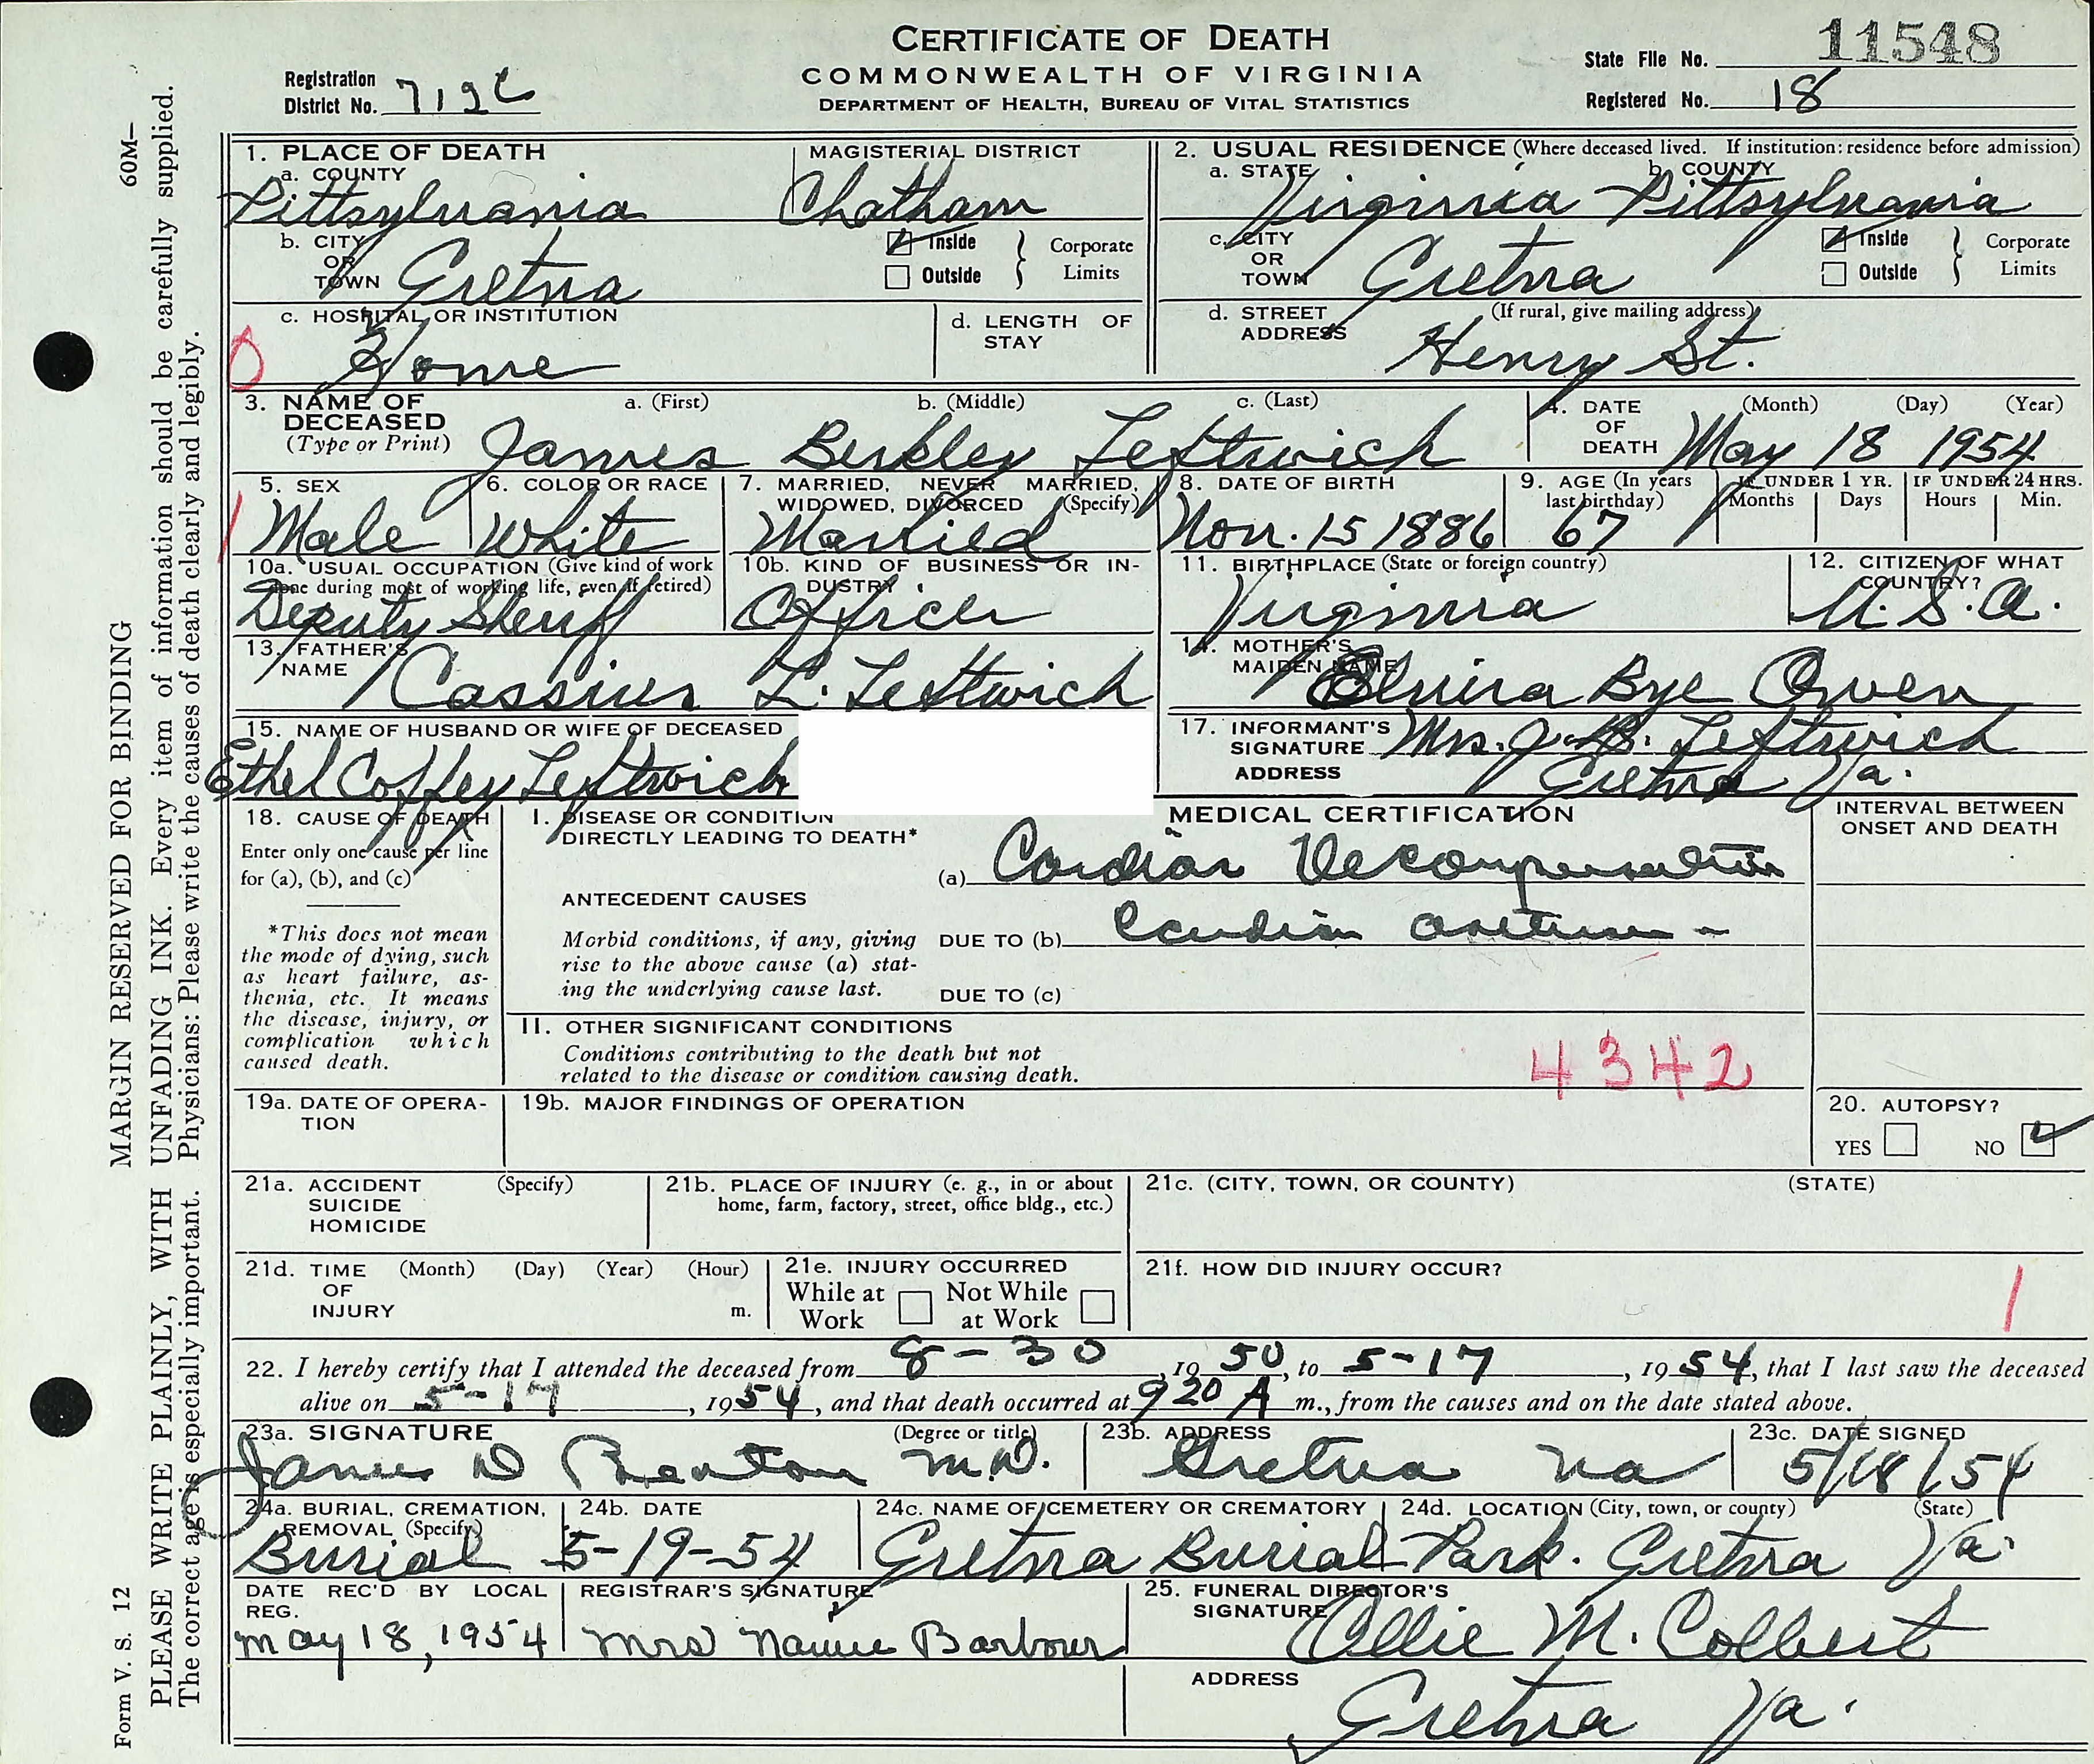 CERTIFICATE OF DEATH
COMMONWEALTH OF VIRGINIA
DEPARTMENT OF HEALTH, BUREAU OF VITAL STATISTICS
Registration District No. 719C
State File No. 11548
Registered No. 18
60M—
MARGIN RESERVED FOR BINDING
PLEASE WRITE PLAINLY, WITH UNFADING INK. Every item of information should be carefully supplied.
The correct age is especially important. Physicians: Please write the causes of death clearly and legibly.
Form V. S. 12
1. PLACE OF DEATH
a. COUNTY Pittsylvania
MAGISTERIAL DISTRICT Chatham
b. CITY OR TOWN Gretna
Inside
Outside
Corporate Limits
c. HOSPITAL OR INSTITUTION Home
0
d. LENGTH OF STAY
2. USUAL RESIDENCE (Where deceased lived. If institution: residence before admission)
a. STATE Virginia
b. COUNTY Pittsylvania
c. CITY OR TOWN Gretna
Inside
Outside
Corporate Limits
d. STREET ADDRESS (If rural, give mailing address)
Henry St.
3. NAME OF DECEASED (Type or Print)
a. (First) b. (Middle) c. (Last)
James Berkley Leftwich
4. DATE OF DEATH (Month) (Day) (Year)
May 18 1954
5. SEX Male
1
6. COLOR OR RACE White
7. MARRIED, NEVER MARRIED, WIDOWED, DIVORCED (Specify)
Married
8. DATE OF BIRTH
Nov. 15 1886
9. AGE (In years last birthday) 67
IF UNDER 1 YR. Months Days
IF UNDER 24 HRS. Hours Min.
10a. USUAL OCCUPATION (Give kind of work done during most of working life, even if retired)
Deputy Sheriff
10b. KIND OF BUSINESS OR INDUSTRY
Officer
11. BIRTHPLACE (State or foreign country)
Virginia
12. CITIZEN OF WHAT COUNTRY?
U.S.A.
13. FATHER'S NAME
Cassius L. Leftwich
14. MOTHER'S MAIDEN NAME
Elvira Bye Owen
15. NAME OF HUSBAND OR WIFE OF DECEASED
Ethel Coffey Leftwich
17. INFORMANT'S SIGNATURE Mrs. J. B. Leftwich
ADDRESS Gretna Va.
18. CAUSE OF DEATH
Enter only one cause per line for (a), (b), and (c)
*This does not mean the mode of dying, such as heart failure, asthenia, etc. It means the disease, injury, or complication which caused death.
MEDICAL CERTIFICATION
INTERVAL BETWEEN ONSET AND DEATH
I. DISEASE OR CONDITION DIRECTLY LEADING TO DEATH*
(a) Cardiac Decompensation
ANTECEDENT CAUSES
Morbid conditions, if any, giving rise to the above cause (a) stating the underlying cause last.
DUE TO (b)
DUE TO (c)
II. OTHER SIGNIFICANT CONDITIONS
Conditions contributing to the death but not related to the disease or condition causing death.
4342
19a. DATE OF OPERATION
19b. MAJOR FINDINGS OF OPERATION
20. AUTOPSY?
YES NO
21a. ACCIDENT SUICIDE HOMICIDE (Specify)
21b. PLACE OF INJURY (e. g., in or about home, farm, factory, street, office bldg., etc.)
21c. (CITY, TOWN, OR COUNTY) (STATE)
21d. TIME OF INJURY (Month) (Day) (Year) (Hour) m.
21e. INJURY OCCURRED
While at Work Not While at Work
21f. HOW DID INJURY OCCUR?
1
22. I hereby certify that I attended the deceased from 8-30, 1950, to 5-17, 1954, that I last saw the deceased
alive on 5-17, 1954, and that death occurred at 920 A m., from the causes and on the date stated above.
23a. SIGNATURE (Degree or title)
James D M.D.
23b. ADDRESS
Gretna Va
23c. DATE SIGNED
5/18/54
24a. BURIAL, CREMATION, REMOVAL (Specify)
Burial
24b. DATE
5-19-54
24c. NAME OF CEMETERY OR CREMATORY
Gretna Burial Park.
24d. LOCATION (City, town, or county) (State)
Gretna Va.
DATE REC'D BY LOCAL REG.
May 18, 1954
REGISTRAR'S SIGNATURE
Mrs Nannie Barbour
25. FUNERAL DIRECTOR'S SIGNATURE
Ollie M. Colbert
ADDRESS
Gretna Va.